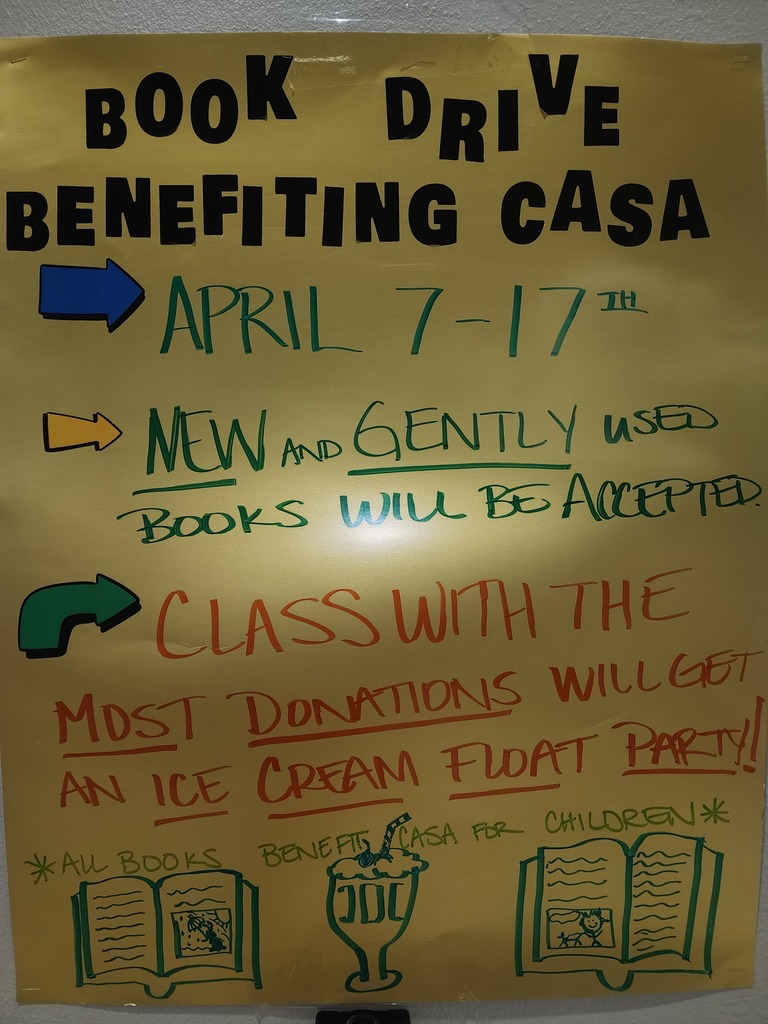 BOOK DRIVE
BENEFITING CASA
APRIL 7-17TH
NEW AND GENTLY USED
BOOKS WILL BE ACCEPTED.
CLASS WITH THE
MOST DONATIONS WILL GET
AN ICE CREAM FLOAT PARTY!
*ALL BOOKS BENEFIT CASA FOR CHILDREN*